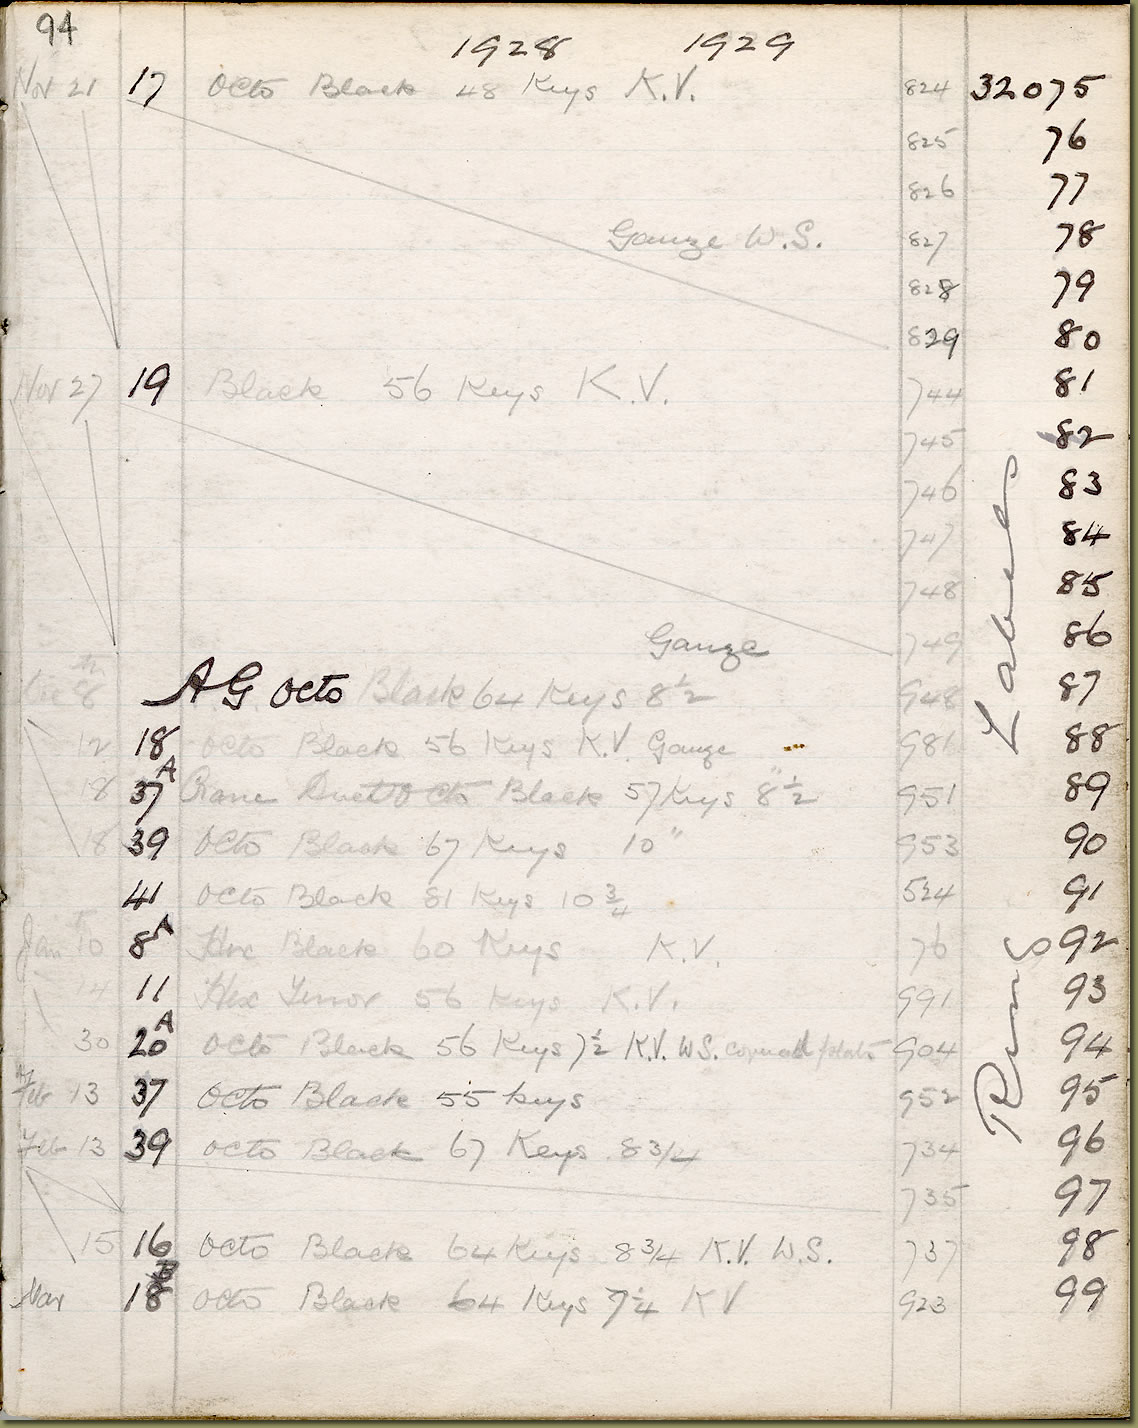 94
1928 1929
Nov 21 17 Octo Black 48 Keys K.V. 824 32075
825 76
826 77
Gauze W.S. 827 78
828 79
829 80
Nov 27 19 Black 56 Keys K.V. 744 81
745 82
746 83
747 84
748 85
Gauze 749 86
8th AG Octo Black 64 Keys 8 1/2 948 87
12 18 Octo Black 56 Keys K.V. Gauze 981 88
18 37A Crane Duett Octo Black 57 Keys 8 1/2" 951 89
18 39 Octo Black 67 Keys 10" 953 90
41 Octo Black 81 Keys 10 3/4 524 91
Jan 10th 8A Hex Black 60 Keys K.V. 76 92
14 11 Hex Tenor 56 Keys K.V. 991 93
30 20A Octo Black 56 Keys 7 1/2 K.V. W.S. 904 94
Feb 13 37 Octo Black 55 keys 952 95
Feb 13 39 Octo Black 67 Keys 8 3/4 734 96
735 97
15 16 Octo Black 64 Keys 8 3/4 K.V. W.S. 737 98
Mar 18B Octo Black 64 Keys 7 1/4 KV 923 99